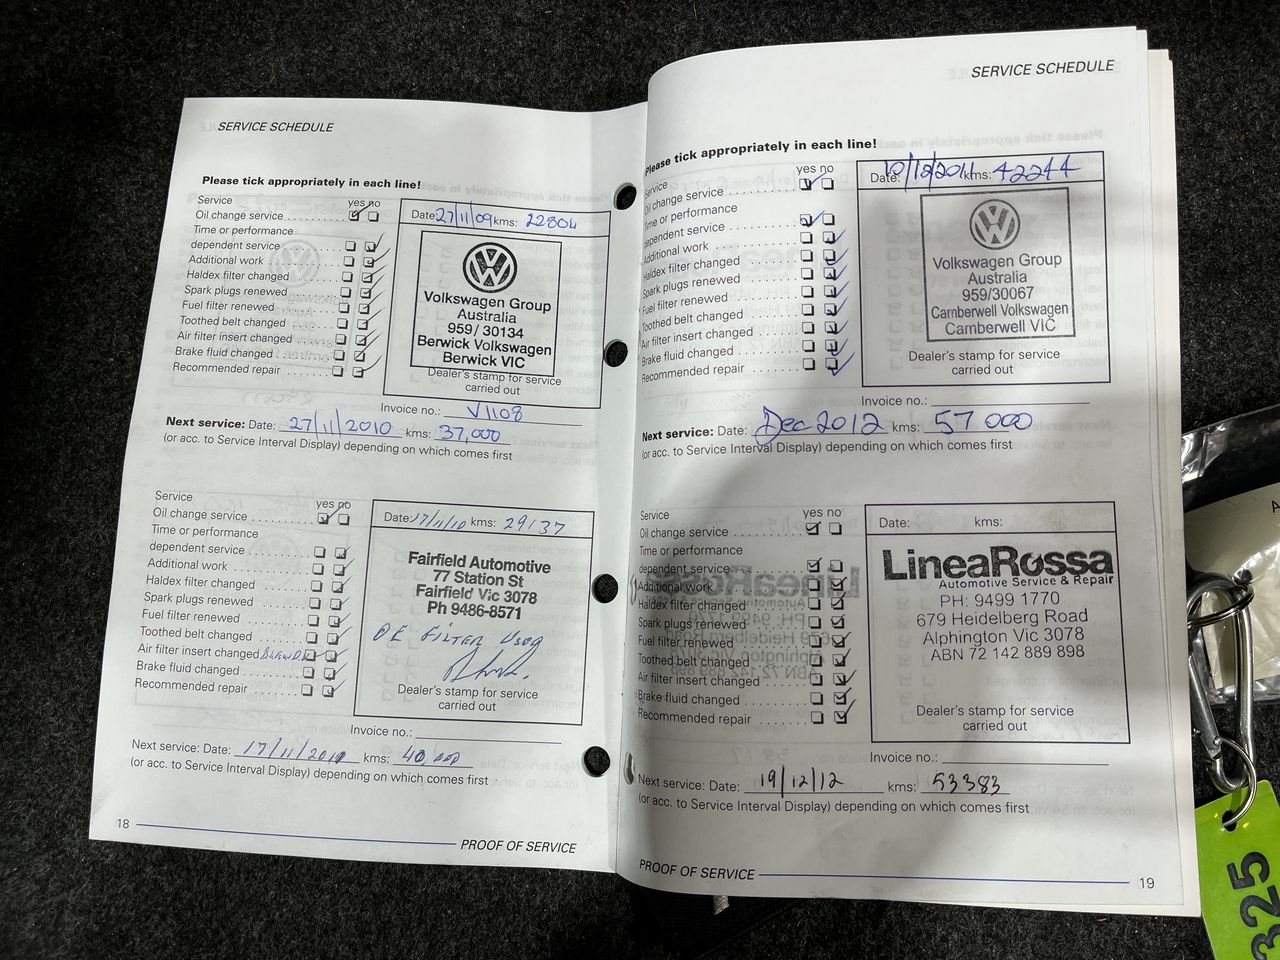 SERVICE SCHEDULE
Please tick appropriately in each line!
Service
yes no
Oil change service
Time or performance
dependent service
Additional work
Haldex filter changed
Spark plugs renewed
Fuel filter renewed
Toothed belt changed
Air filter insert changed
Brake fluid changed
Recommended repair
Date: 27/11/09 kms: 22804
Volkswagen Group
Australia
959 / 30134
Berwick Volkswagen
Berwick VIC
Dealer's stamp for service
carried out
Invoice no.: V1108
Next service: Date: 27/11/2010 kms: 37,000
(or acc. to Service Interval Display) depending on which comes first
Service
yes no
Oil change service
Time or performance
dependent service
Additional work
Haldex filter changed
Spark plugs renewed
Fuel filter renewed
Toothed belt changed
Air filter insert changed
Brake fluid changed
Recommended repair
Date: 17/11/10 kms: 29137
Fairfield Automotive
77 Station St
Fairfield Vic 3078
Ph 9486-8571
OE FILTER USED
Dealer's stamp for service
carried out
Invoice no.:
Next service: Date: 17/11/2010 kms: 40,000
(or acc. to Service Interval Display) depending on which comes first
18
PROOF OF SERVICE
SERVICE SCHEDULE
Please tick appropriately in each line!
Service
yes no
Oil change service
Time or performance
dependent service
Additional work
Haldex filter changed
Spark plugs renewed
Fuel filter renewed
Toothed belt changed
Air filter insert changed
Brake fluid changed
Recommended repair
Date: 10/12/2011 kms: 42244
Volkswagen Group
Australia
959/30067
Camberwell Volkswagen
Camberwell VIC
Dealer's stamp for service
carried out
Invoice no.:
Next service: Date: Dec 2012 kms: 57 000
(or acc. to Service Interval Display) depending on which comes first
Service
yes no
Oil change service
Time or performance
dependent service
Additional work
Haldex filter changed
Spark plugs renewed
Fuel filter renewed
Toothed belt changed
Air filter insert changed
Brake fluid changed
Recommended repair
Date: kms:
LineaRossa
Automotive Service & Repair
PH: 9499 1770
679 Heidelberg Road
Alphington Vic 3078
ABN 72 142 889 898
Dealer's stamp for service
carried out
Invoice no.:
Next service: Date: 19/12/12 kms: 53383
(or acc. to Service Interval Display) depending on which comes first
PROOF OF SERVICE
19
325